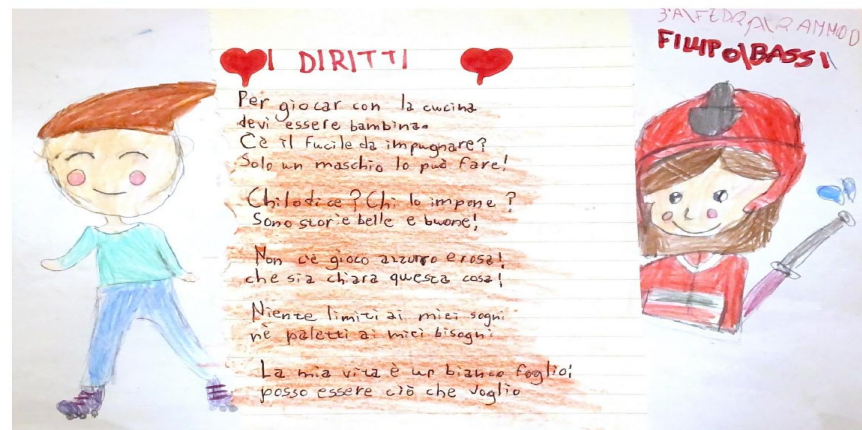 I DIRITTI
FILIPPO\BASSI
Per giocar con la cucina
devi essere bambina.
C'è il fucile da impugnare?
Solo un maschio lo può fare!
Chi lo dice? Chi lo impone?
Sono storie belle e buone!
Non c'è gioco azzurro e rosa!
che sia chiara questa cosa!
Niente limiti ai miei sogni
nè paletti ai miei bisogni
La mia vita è un bianco foglio:
posso essere ciò che voglio